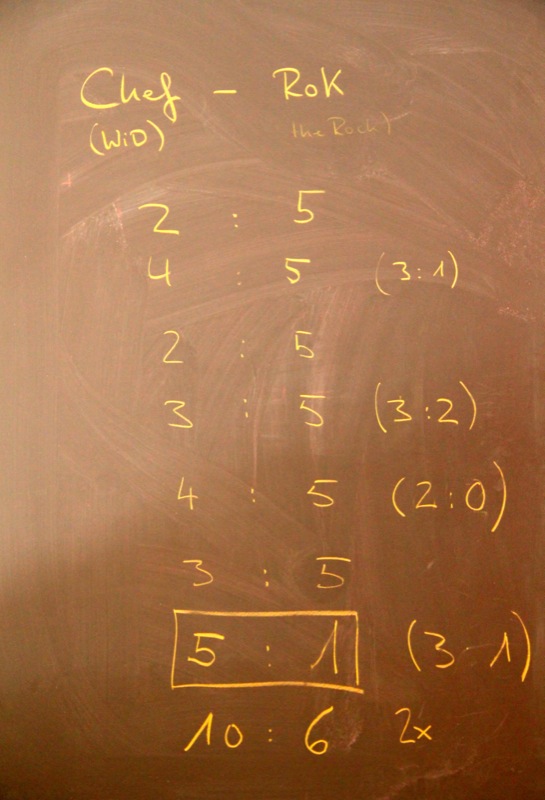 Chef - RoK
(WiD) the Rock
2 : 5
4 : 5 (3:1)
2 : 5
3 : 5 (3:2)
4 : 5 (2:0)
3 : 5
5 : 1 (3-1)
10 : 6 2x